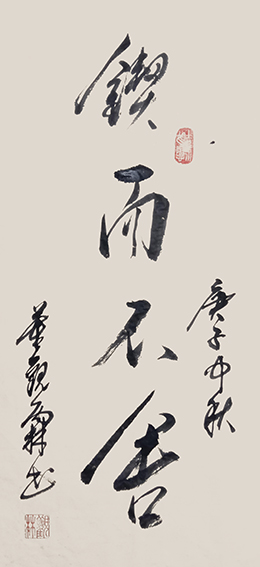 锲而不舍
庚子中秋
董观霖书